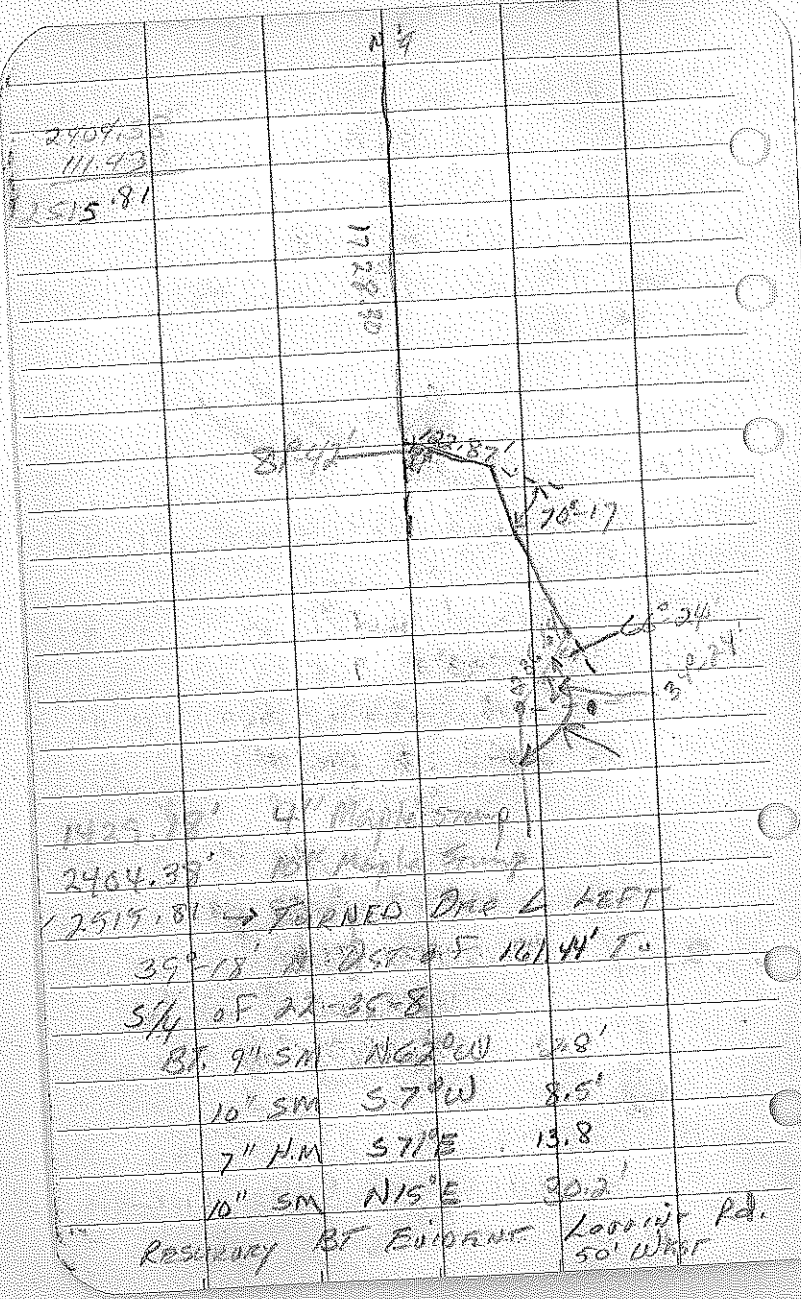 N 1/4
2404.38
111.43
2515.81
1728.80
81°-42'
22.87'
70°-17
66°-24'
34°-24'
4" Maple stump
2404.38' 10" Maple Stump
2515.81 → TURNED DEF L LEFT
39°-18' A DIST OF 161.44' To
S 1/4 of 22-35-8
BT. 9" SM N62°W 28'
10" SM S7°W 8.5'
7" H.M S71°E 13.8
10" SM N15°E 30.2'
RESURVEY BT EVIDENT Logging Rd.
50' WEST